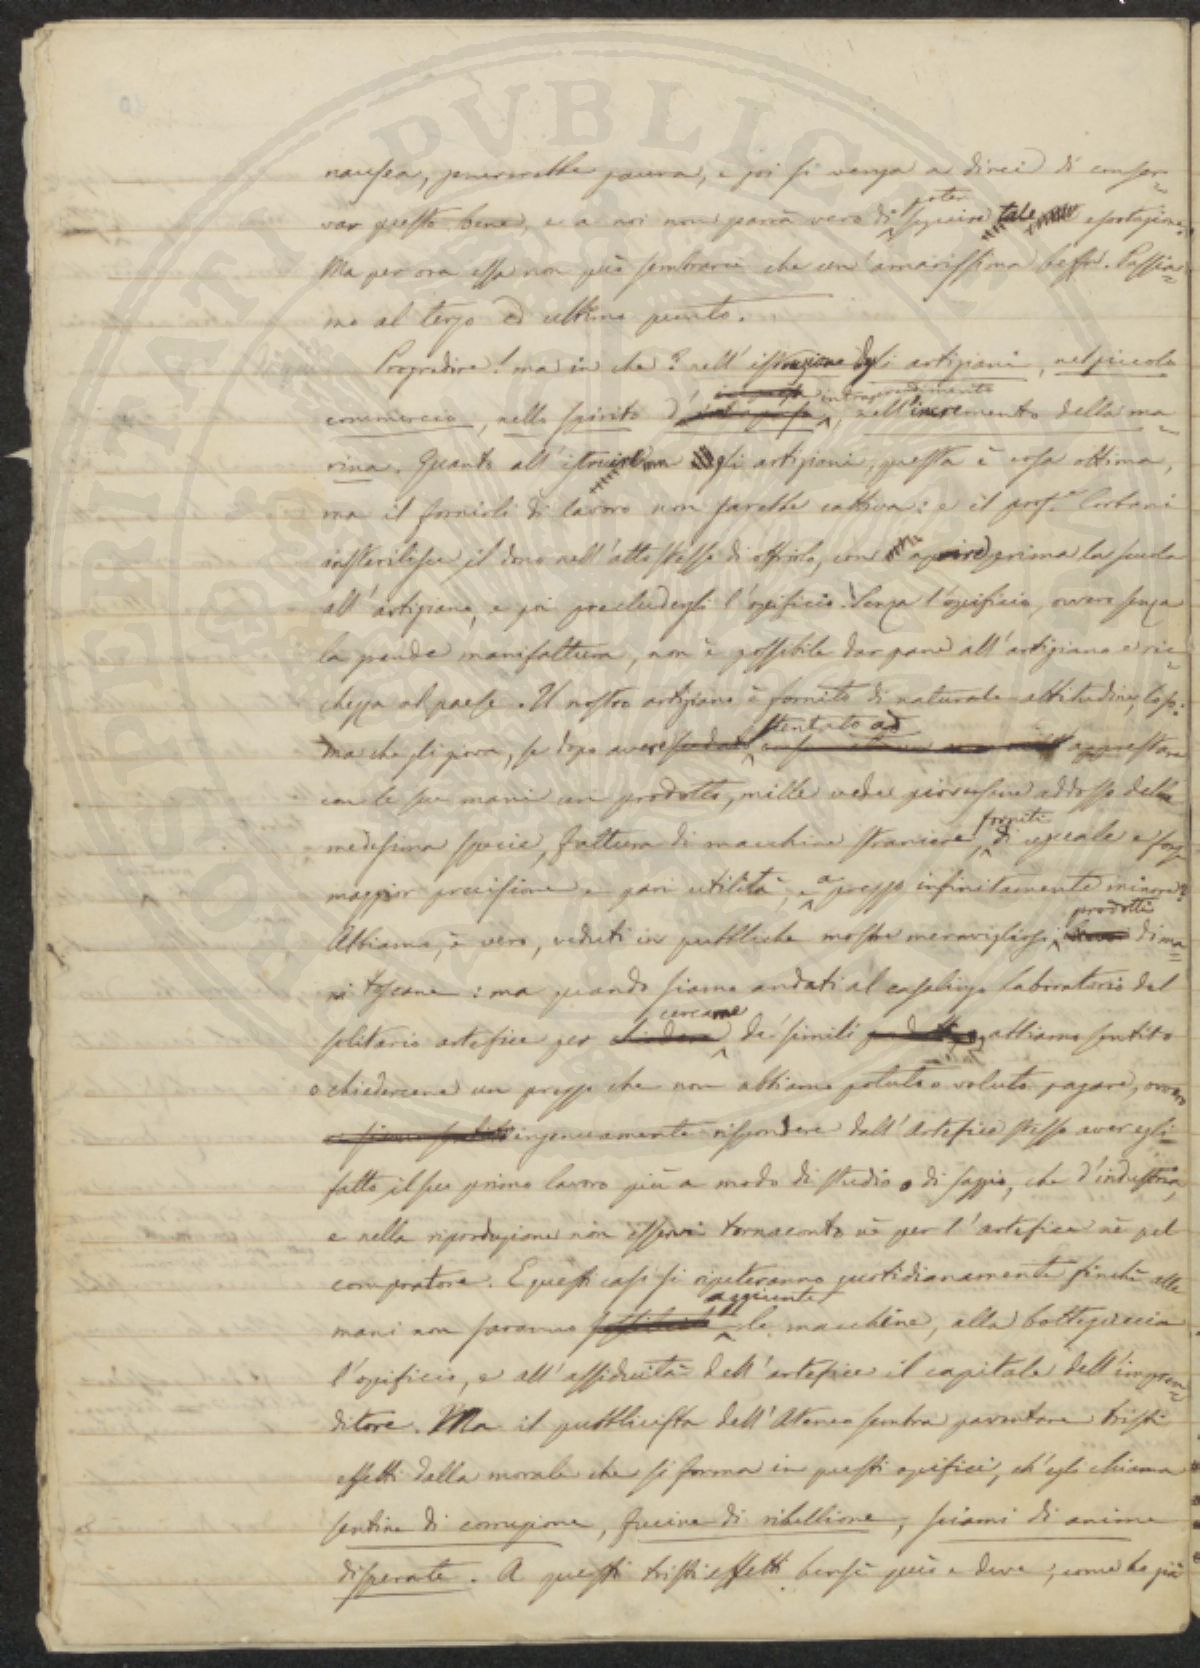 nausea, genererebbe paura, e poi si venga a dirci di conser=
var questo bene, e a noi non parrà vero di poter seguire tale esortazione.
Ma per ora essa non può sembrarci che un'amarissima beffa. Passia=
mo al terzo ed ultimo punto.
Progredire! ma in che? nell'istruzione degli artigiani, nel piccolo
commercio, nello spirito d'intraprendimento, nell'incremento della ma=
rina. Quanto all'istruire gli artigiani, questa è cosa ottima,
ma il fornirli di lavoro non sarebbe cattiva: e il prof.e Corbani
insterilisce il dono nell'atto stesso di offrirlo, con aprire prima la scuola
all'artigiano, e poi precludergli l'opificio. Senza l'opificio, ovvero senza
la grande manifattura, non è possibile dar pane all'artigiano e ric=
chezza al paese. Il nostro artigiano è fornito di naturale attitudine,
ma che gli giova, se dopo avere stentato ad apprestare
con le sue mani un prodotto, mille vede pioversene addosso della
medesima specie, fattura di macchine straniere, forniti di uguale e forse
maggior precisione e pari utilità, e a prezzo infinitamente minore?
Abbiamo, è vero, veduti in pubbliche mostre meravigliosi prodotti di ma=
ni toscane: ma quando siamo andati al casalingo laboratorio del
solitario artefice per cercarne de' simili abbiamo sentito
o chiedercene un prezzo che non abbiamo potuto o voluto pagare, ovvero
ingenuamente rispondere dall'artefice stesso aver egli
fatto il suo primo lavoro più a modo di studio o di saggio, che d'industria,
e nella riproduzione non esservi tornaconto nè per l'artefice nè pel
compratore. E questi casi si ripeteranno quotidianamente finchè alle
mani non saranno aggiunte le macchine, alla botteguccia
l'opificio, e all'assiduità dell'artefice il capitale dell'impren=
ditore. Ma il pubblicista dell'Ateneo sembra paventare tristi
effetti dalla morale che si forma in questi opifici, ch'egli chiama
sentine di corruzione, fucine di ribellione, sciami di anime
disperate. A questi tristi effetti bensì può e deve, come ha già